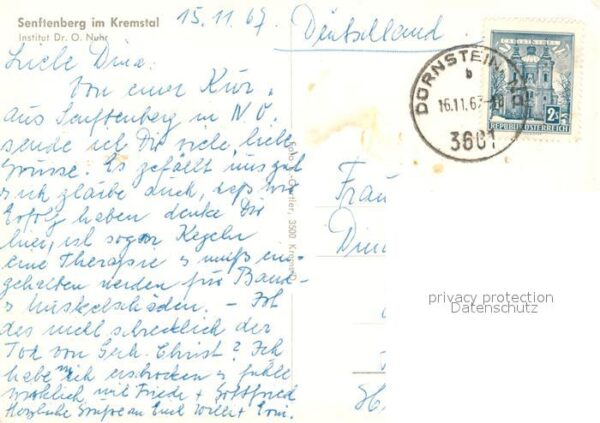 Senftenberg im Kremstal
Institut Dr. O. Nuhr
15.11.67
Deutschland
Liebe Dina:
Von einer Kur
aus Senftenberg in N.Ö.
sende ich Dir viele, liebe
Grüsse. Es gefällt uns gut
u ich glaube auch, daß wir
Erfolg haben denke Dir
hier, ist sogar Kegeln
eine Therapie u muß ein-
gehalten werden für Band-
u Muskelschäden. – Ist
das nicht schrecklich der
Tod von Gerh. Christ? Ich
habe mich erschrocken u fühlt
wirklich mit Friede + Gottfried
Herzliche Grüsse an Euch Willi +
DÜRNSTEIN
b
16.11.67
3601
2S
REPUBLIK ÖSTERREICH
Frau
Dina
privacy protection
Datenschutz